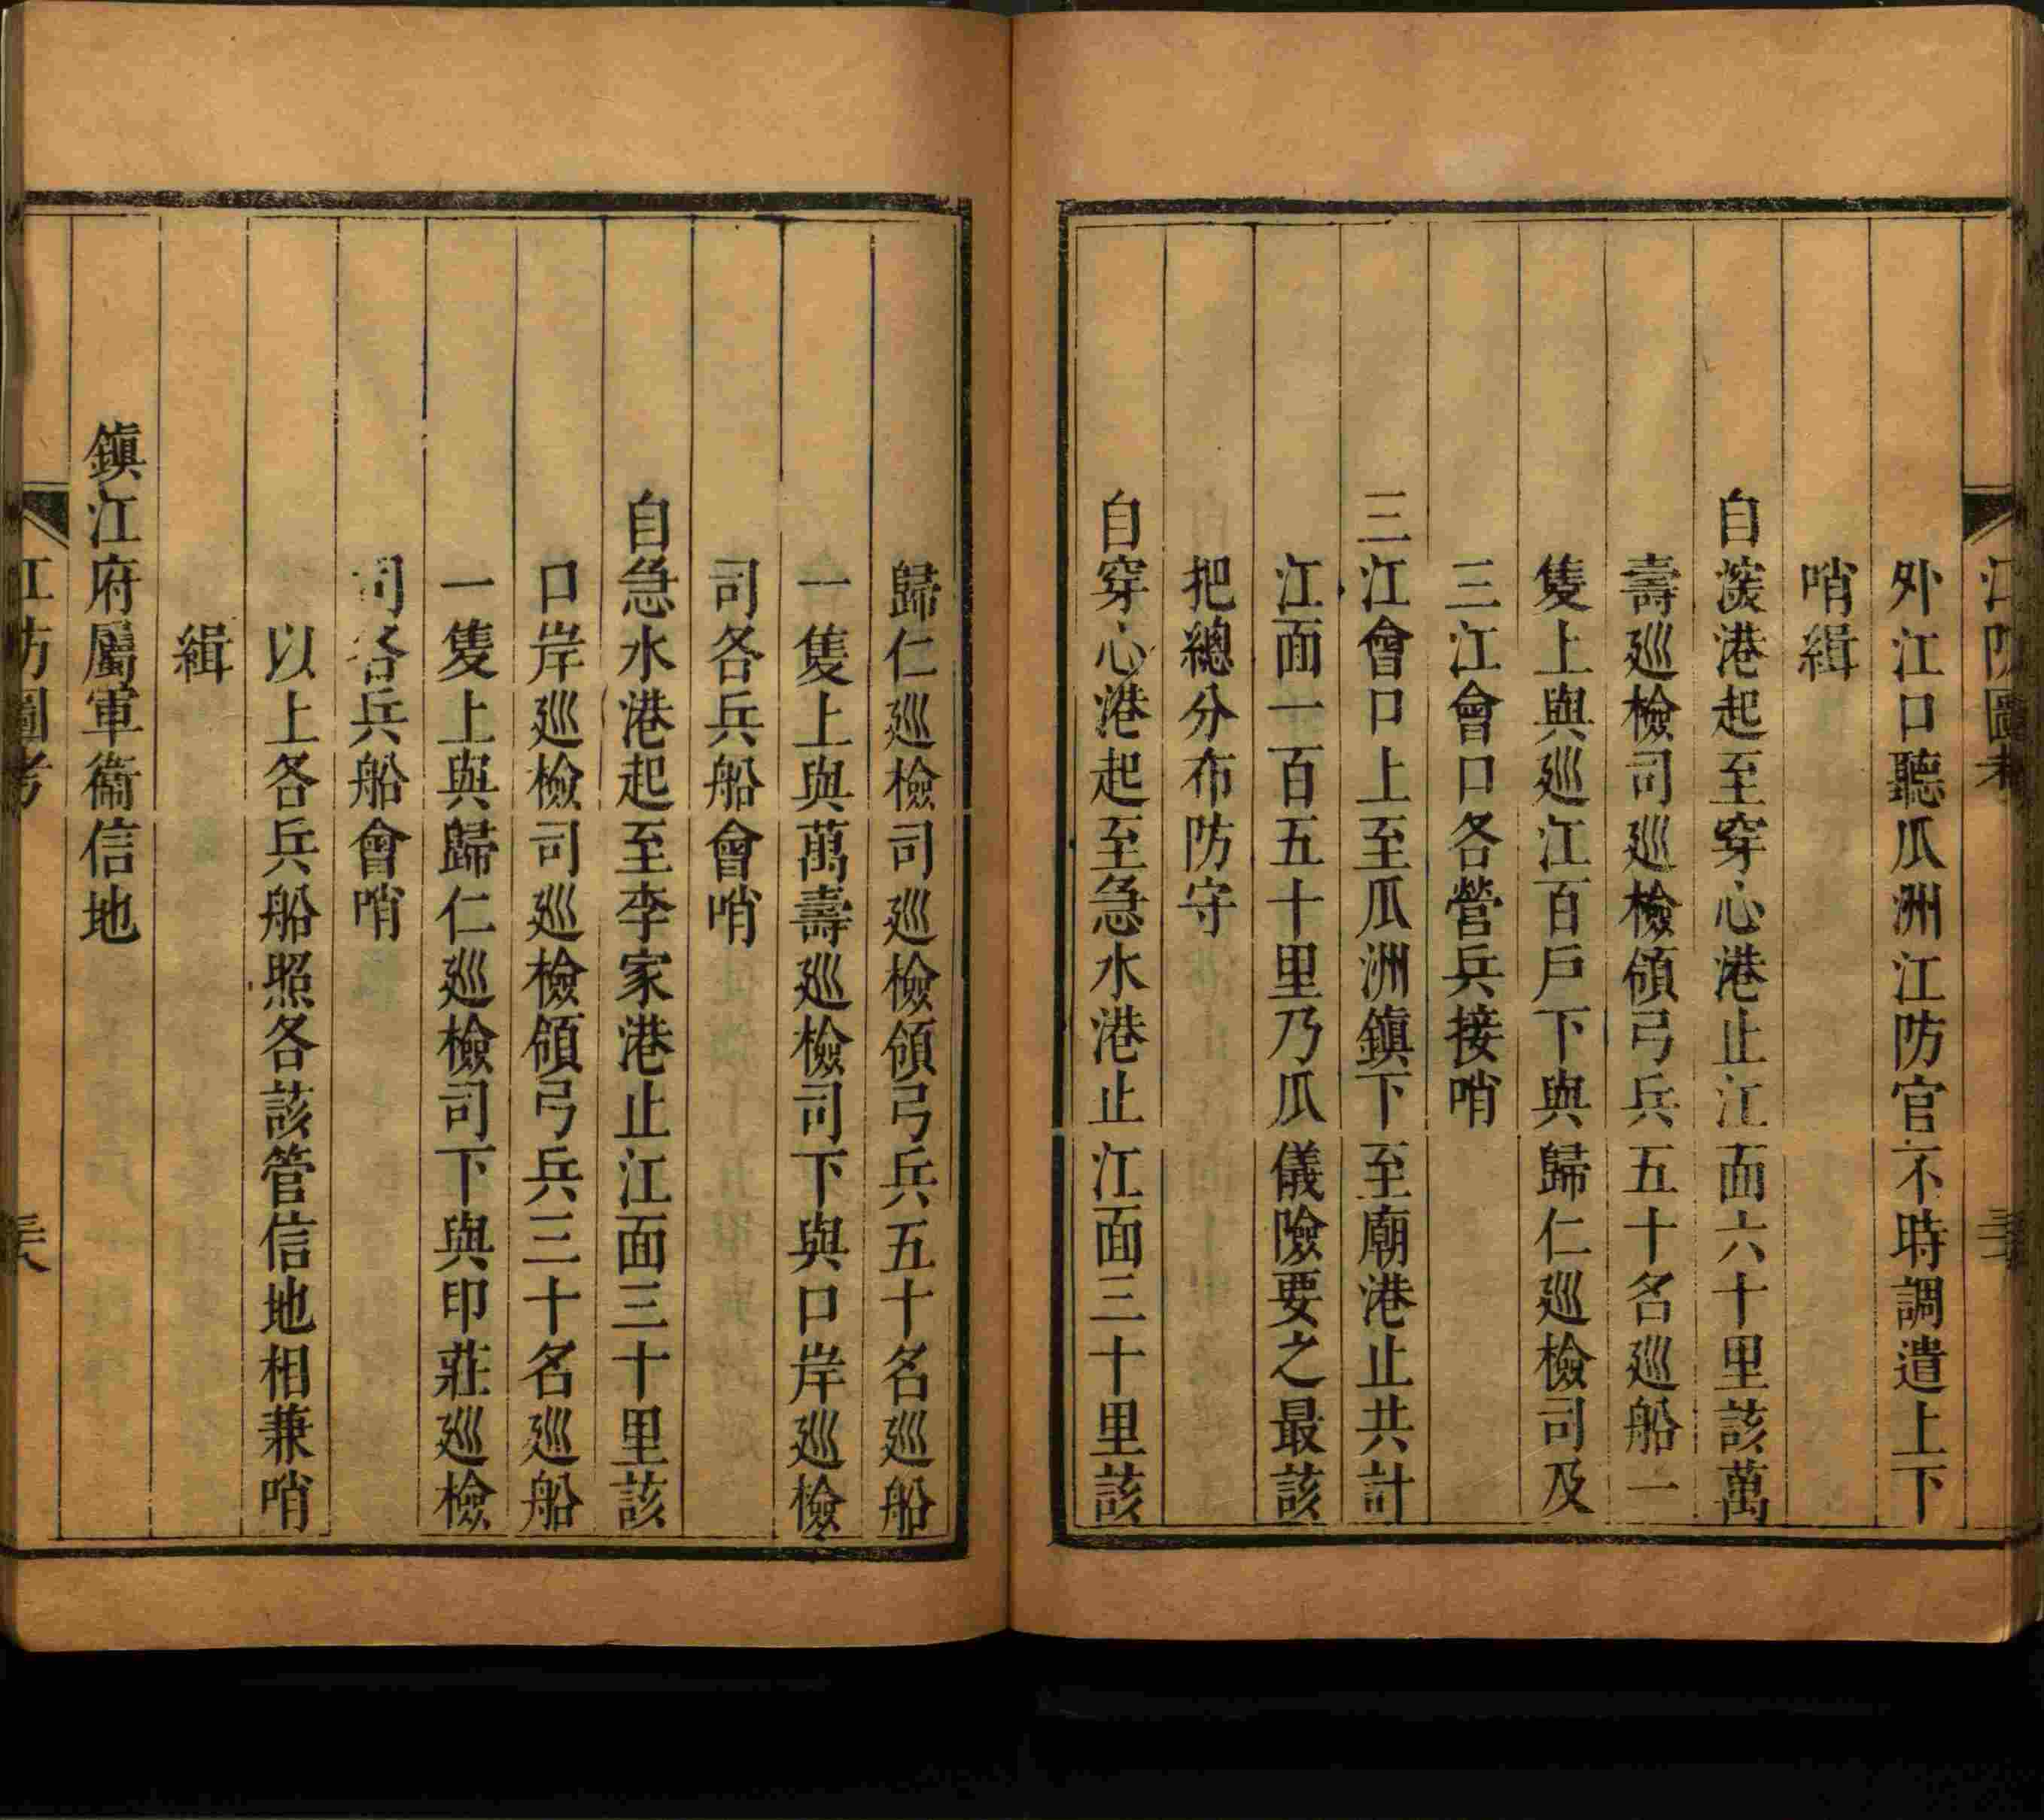 江防圖考
外江口聽瓜洲江防官不時調遣上下
哨緝
自滧港起至穿心港止江面六十里該萬
壽廵檢司廵檢領弓兵五十名廵船一
隻上與廵江百戶下與歸仁廵檢司及
三江會口各營兵接哨
三江會口上至瓜洲鎮下至廟港止共計
江面一百五十里乃瓜儀險要之最該
把總分布防守
自穿心港起至急水港止江面三十里該
歸仁廵檢司廵檢領弓兵五十名廵船
一隻上與萬壽廵檢司下與口岸廵檢
司各兵船會哨
自急水港起至李家港止江面三十里該
口岸廵檢司廵檢領弓兵三十名廵船
一隻上與歸仁廵檢司下與印莊廵檢
司各兵船會哨
以上各兵船照各該管信地相兼哨
緝
鎭江府屬軍衞信地
江防圖考